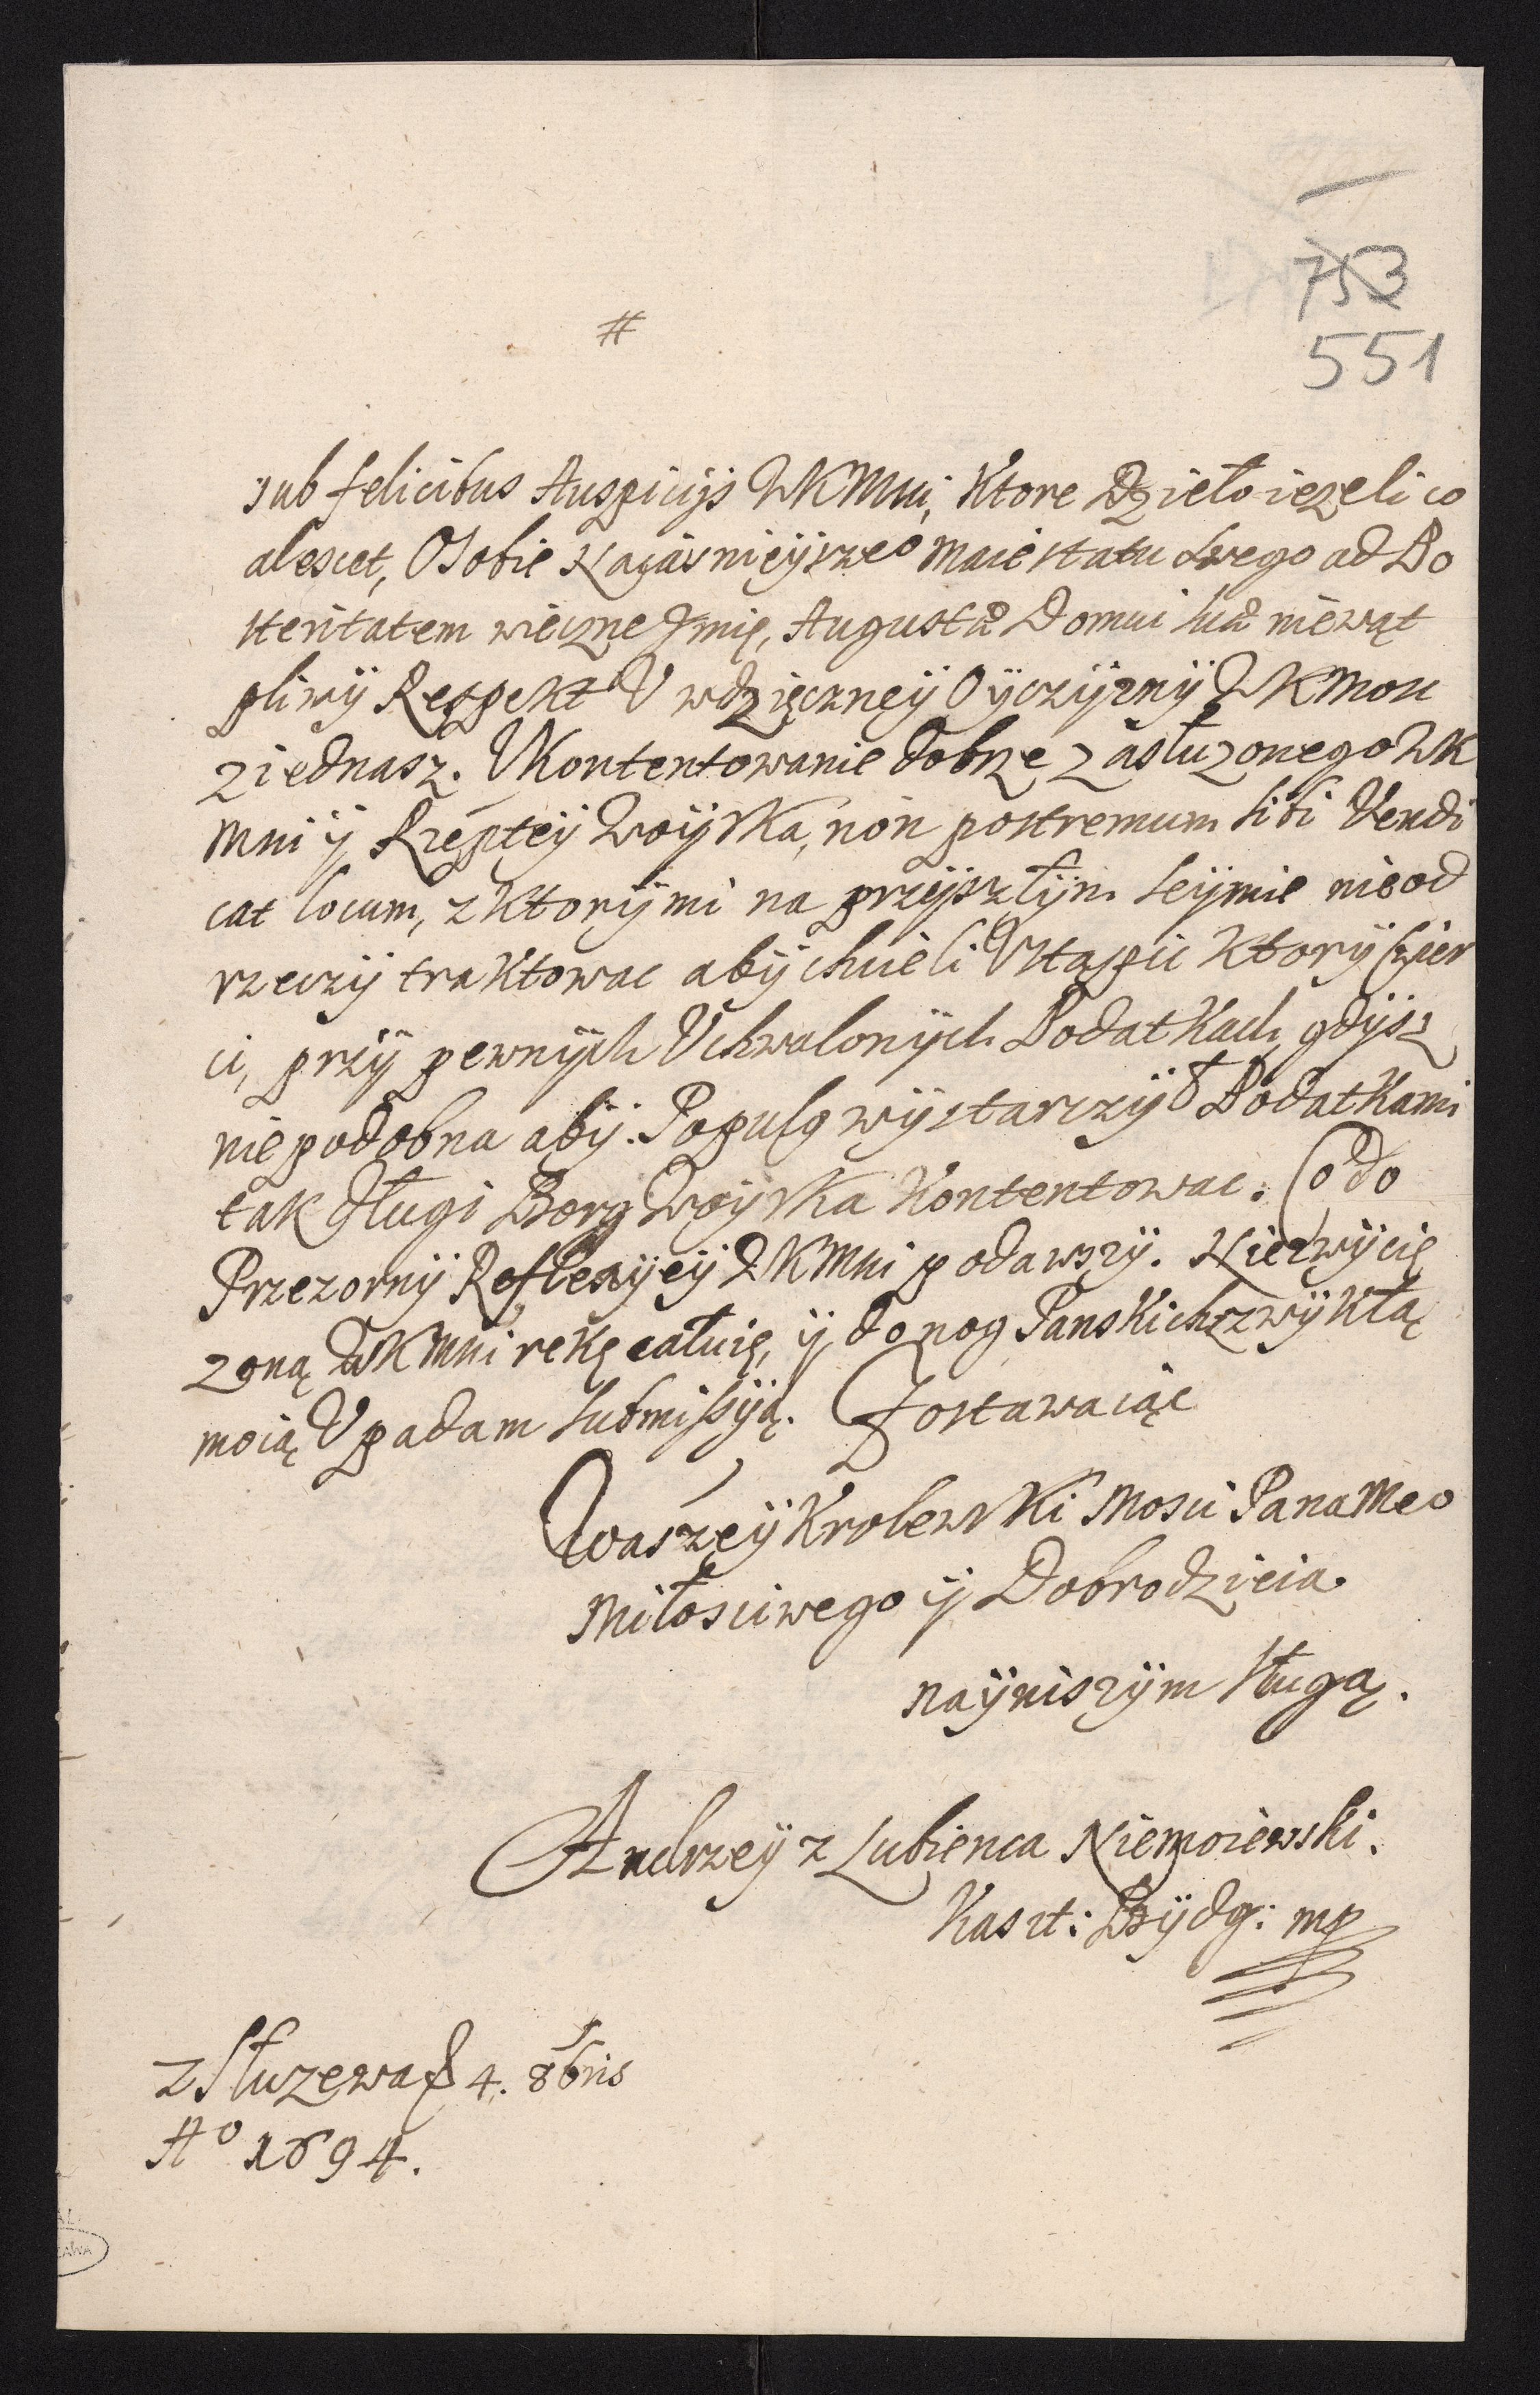 753
551
#
sub felicibus Auspicijs WKMci, Ktore Dzieło iezeli co
alescet, Osobie Najásnieÿszeo Maiestatu swego ad Po
steritatem wieczne Jmię, Augustæ Domui suæ niewąt
pliwÿ Respekt V wdzięczneÿ Oÿczÿznÿ WKMosci
ziednasz. VKontentowanie dobrze zasłuzonego WK
Mci ÿ Rzepteÿ Woÿska, non postremum sibi Vendi
cat locum, z Ktorÿmi na przÿszłÿm seÿmie nie od
rzeczÿ traktowac abÿ chcieli Vstąpic Ktorÿ czier
ci, przÿ pewnÿch Vchwalonÿch Podatkach, gdÿsz
nie podobna abÿ Populg wÿstarczÿł Podatkami
tak długi Borg Woÿska Kontentowac. Co do
Przezornÿ Reflexÿeÿ WKMci podawszÿ. Niezwÿcię
zoną WKMci rękę całuię, ÿ do nog Panskich z zwÿkłą
moią Vpadam submissÿą. Zostawaiąc
Waszeÿ Krolewski Mosci Pana Meo
Miłosciwego ÿ Dobrodzieia
naÿniszÿm sługą.
Andrzeÿ z Lubienca Niemoiewski.
Kaszt: Bÿdg: mp
z Słuzewa d 4. 8bris
Aº 1694.